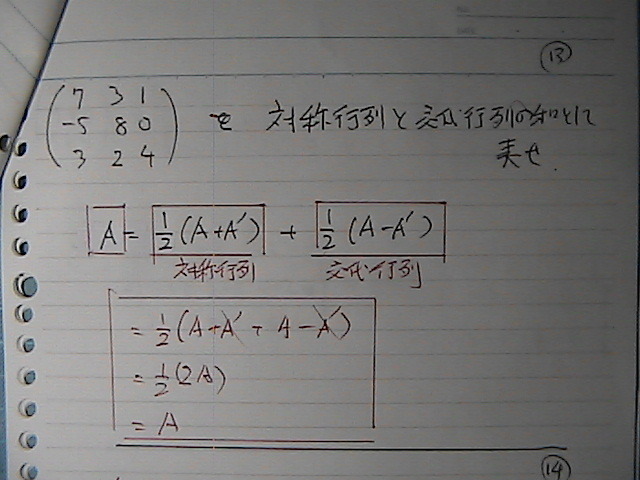 ⑬
7 3 1
-5 8 0 を 対称行列と交代行列の和として
3 2 4
表せ.
A = 1/2 (A+A′) + 1/2 (A-A′)
対称行列 交代行列
= 1/2 (A+A′ + A-A′)
= 1/2 (2A)
= A
⑭